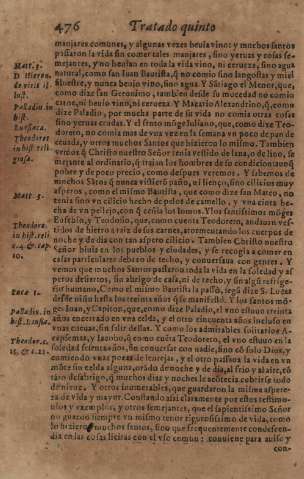 476 Tratado quinto
manjares comunes, y algunas vezes beuia vino: y muchos santos
passaron la vida sin comer tales manjares, sino yeruas y cosas se-
mejantes, y no beuian en toda la vida vino, ni cerueza, sino agua
natural, como san Iuan Bautista, que no comio sino langostas y miel
siluestre, y nunca beuio vino, sino agua. Y Santiago el Menor, que,
como dize san Geronimo, tambien desde su mocedad no comio
carne, ni beuio vino, ni cerueza. Y Macario Alexandrino, que, como
dize Paladio, por mucha parte de su vida no comia otras cosas
sino yeruas crudas. Y el santo monge Iuliano, que, como dize Teo-
doreto, no comia mas de vna vez en la semana vn poco de pan de
ceuada, y otros muchos Santos que hizieron lo mismo. Tambien
vestido Christo nuestro Señor tenia vestido de lana, o de lino, se
mejante al ordinario, que traian los hombres de su condicion
pobre y de poco precio, como despues veremos. Y sabemos de
muchos Santos que nunca vistieron paño, ni lienço, sino cilicios muy
asperos, como el mismo Bautista, que como dize san Mateo, no
tenia sino vn cilicio hecho de pelos de camello, y vna cinta he-
cha de vn pellejo, con que cenia los lomos. Y los santissimos monges
Eusebio, y Teodosio, que, como cuenta Teodoreto, andauan ves-
tidos de hierro a raiz de sus carnes, atormentando los cuerpos de
noche y de dia con tan aspero cilicio. Tambien Christo nuestro
Señor biuia en los pueblos y ciudades, y se recogia a comer en
casas particulares debaxo de techo, y conuersaua con gentes. Y
vemos que muchos Santos passaron toda la vida en la soledad y as-
peros desiertos, sin abrigo de casa, ni de techo, y sin algun refrige-
rio humano. Como el mismo Bautista la passò, segun dize S. Lucas
desde niño hasta los treinta años que se manifestò. Y los santos mõ-
ges Iuan, y Capiton, que, como dize Paladio, el vno estuuo treinta
años encerrado en vna celda, y el otro cincuenta años incluso en
vna cueua, sin salir dellas. Y como los admirables
y Iamato, que como cuẽta Teodoreto, el vno estuuo en la
soledad sesenta años, sin conuersar con nadie, sino cõ solo Dios, y
comiendo vnas pocas de lentejas, y el otro passaua la vida en vn
mõte sin celda alguna, orãdo de noche y de dia, al frio y al aire, cõ
tanto desabrigo, que muchos dias y noches le acontecia cubrirse todo
de nieue. Y otros inumerables, que guardaron la misma aspere-
za de vida y mayor. Constando assi claramente por estos testimo-
nios y exemplos, y otros semejantes, que el sapientissimo Señor
no guardò siempre vn mismo tenor rigurosissimo de vida, como
lo hizieron muchos santos, sino que frequentemente condescen-
dia en las cosas licitas con el vso comun: conuiene para auiso y
con-
Matt. 3.
D. Hieron.
de viris il
lust.
Palladio in
hist.
Lausiaca.
Theodoret
in hist. reli
giosa.
Matt. 3.
Theodore.
in hist. reli
c. 4. & cap.
10.
Luce 1.
Palladio. in
hist. Lausia.
Theodor. c.